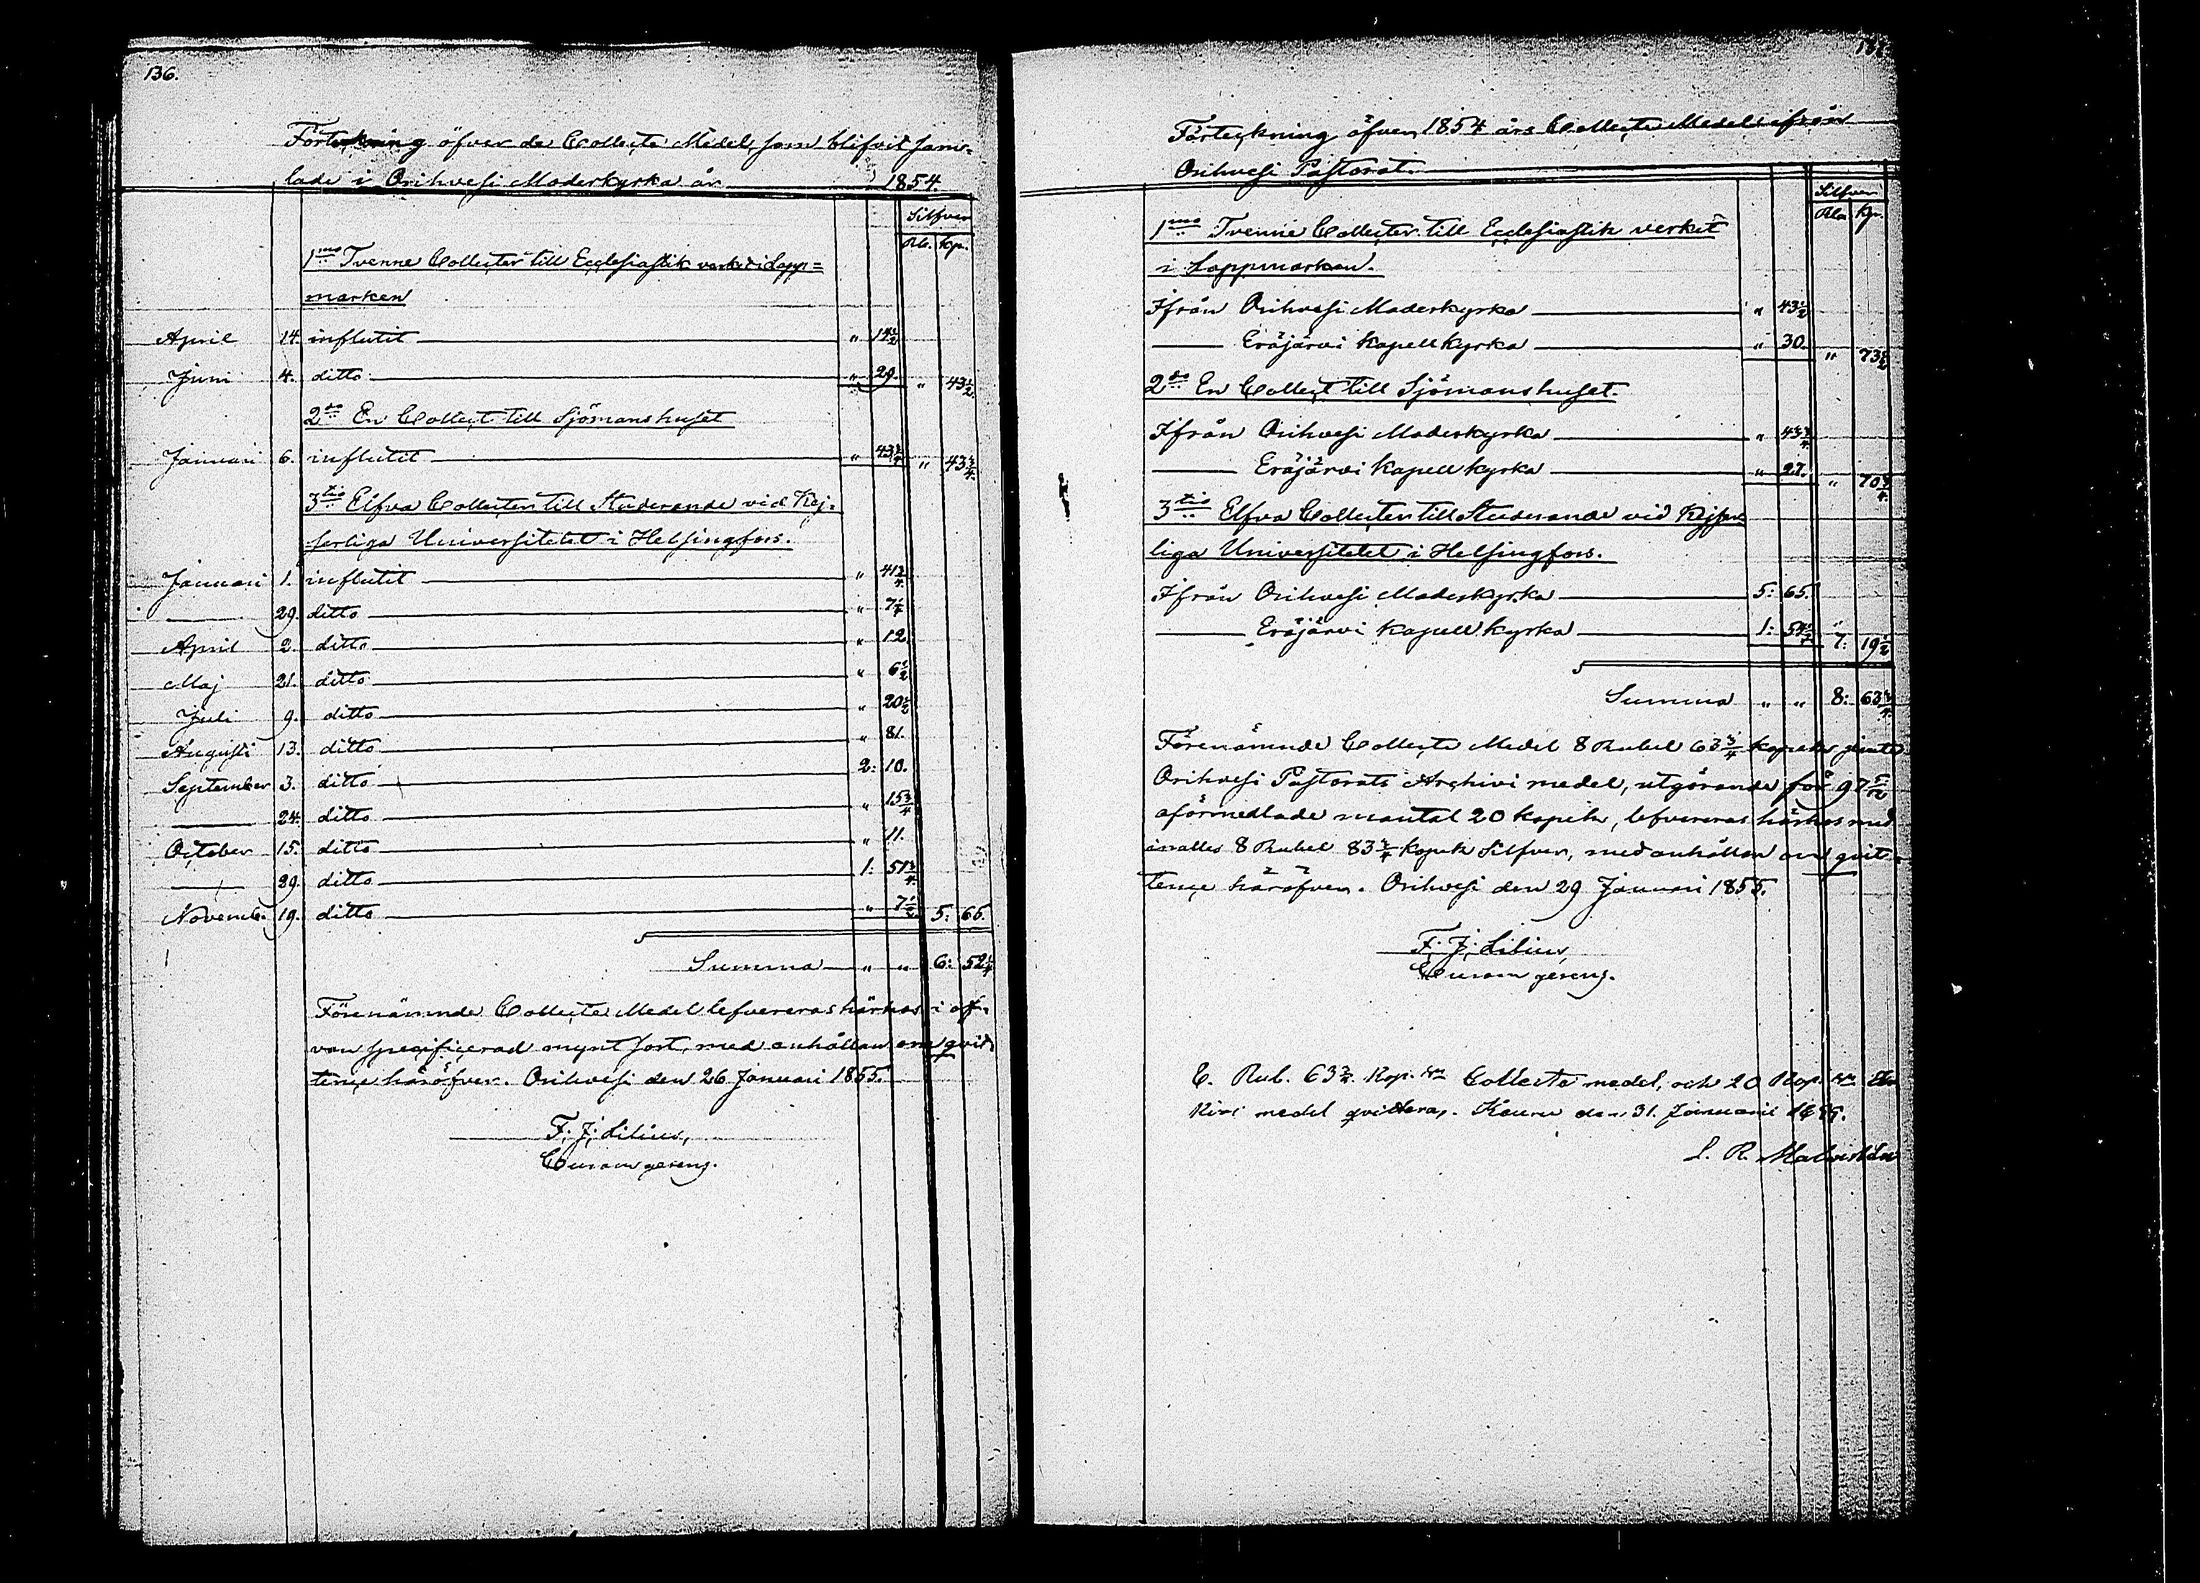 136.
Förteckning öfver de Collecte Medel, som blifvit sam-
lade i Orihvesi Moderkyrka år 1854.
Silfver
Rb. kp.
1mo Tvenne Collecter till Ecclesiastik verket i Lapp=
marken
April 14. influtit " 14½
Juni 4. ditto " 29. " 43½
2do En Collect till Sjömanshuset
Januari 6. influtit " 43¾ " 43¾
3tio Elfva Collecter till Studerande vid Kej-
serliga Universitetet i Helsingfors.
Januari 1. influtit " 41¾
— 29. ditto " 7¼
April 2. ditto " 12.
Maj 21. ditto " 6½
Juli 9. ditto " 20½
Augusti 13. ditto " 81.
September 3. ditto 2: 10.
— 24. ditto " 15¾
October 15. ditto " 11.
— 29. ditto 1: 51¾
Novemb. 19. ditto " 7½ 5: 65.
Summa " " 6: 52¼
Förenämnde Collecte Medel lefvereras härhos i of-
van specificerad mynt sort, med anhållan om qvit-
tence häröfver. Orihvesi den 26 Januari 1855.
F. J. Lilius,
Curam gerens.
137.
Förteckning öfver 1854 års Collecte Medel ifrån
Orihvesi Pastorat.
Silfver
Rbl. Kp.
1mo Tvenne Collecter till Ecclesiastik verket
i Lappmarken.
Ifrån Orihvesi Moderkyrka " 43½
— Eräjärvi Kapellkyrka " 30. " 73½
2do En Collect till Sjömanshuset.
Ifrån Orihvesi Moderkyrka " 43¾
— Eräjärvi Kapellkyrka " 27. " 70¾
3tio Elfva Collecter till Studerande vid Kejser-
liga Universitetet i Helsingfors.
Ifrån Orihvesi Moderkyrka 5: 65.
— Eräjärvi Kapellkyrka 1: 54½ 7: 19½
Summa " " 8: 63¾
Förenämnde Collecte Medel 8 Rubel 63¾ kopek, jemte
Orihvesi Pastorats Archivi medel, utgörande för 97
oförmedlade mantal 20 kopek, lefvereras härhos med
inalles 8 Rubel 83¾ kopek Silfver, med anhållan om qvit-
tence häröfver. Orihvesi den 29 Januari 1855.
F. J. Lilius,
Curam gerens.
Rub. 63¾ Kop. Collecte medel, och 20 Kop.
medel qvitteras. den 31. Januarii 1855.
L. R.